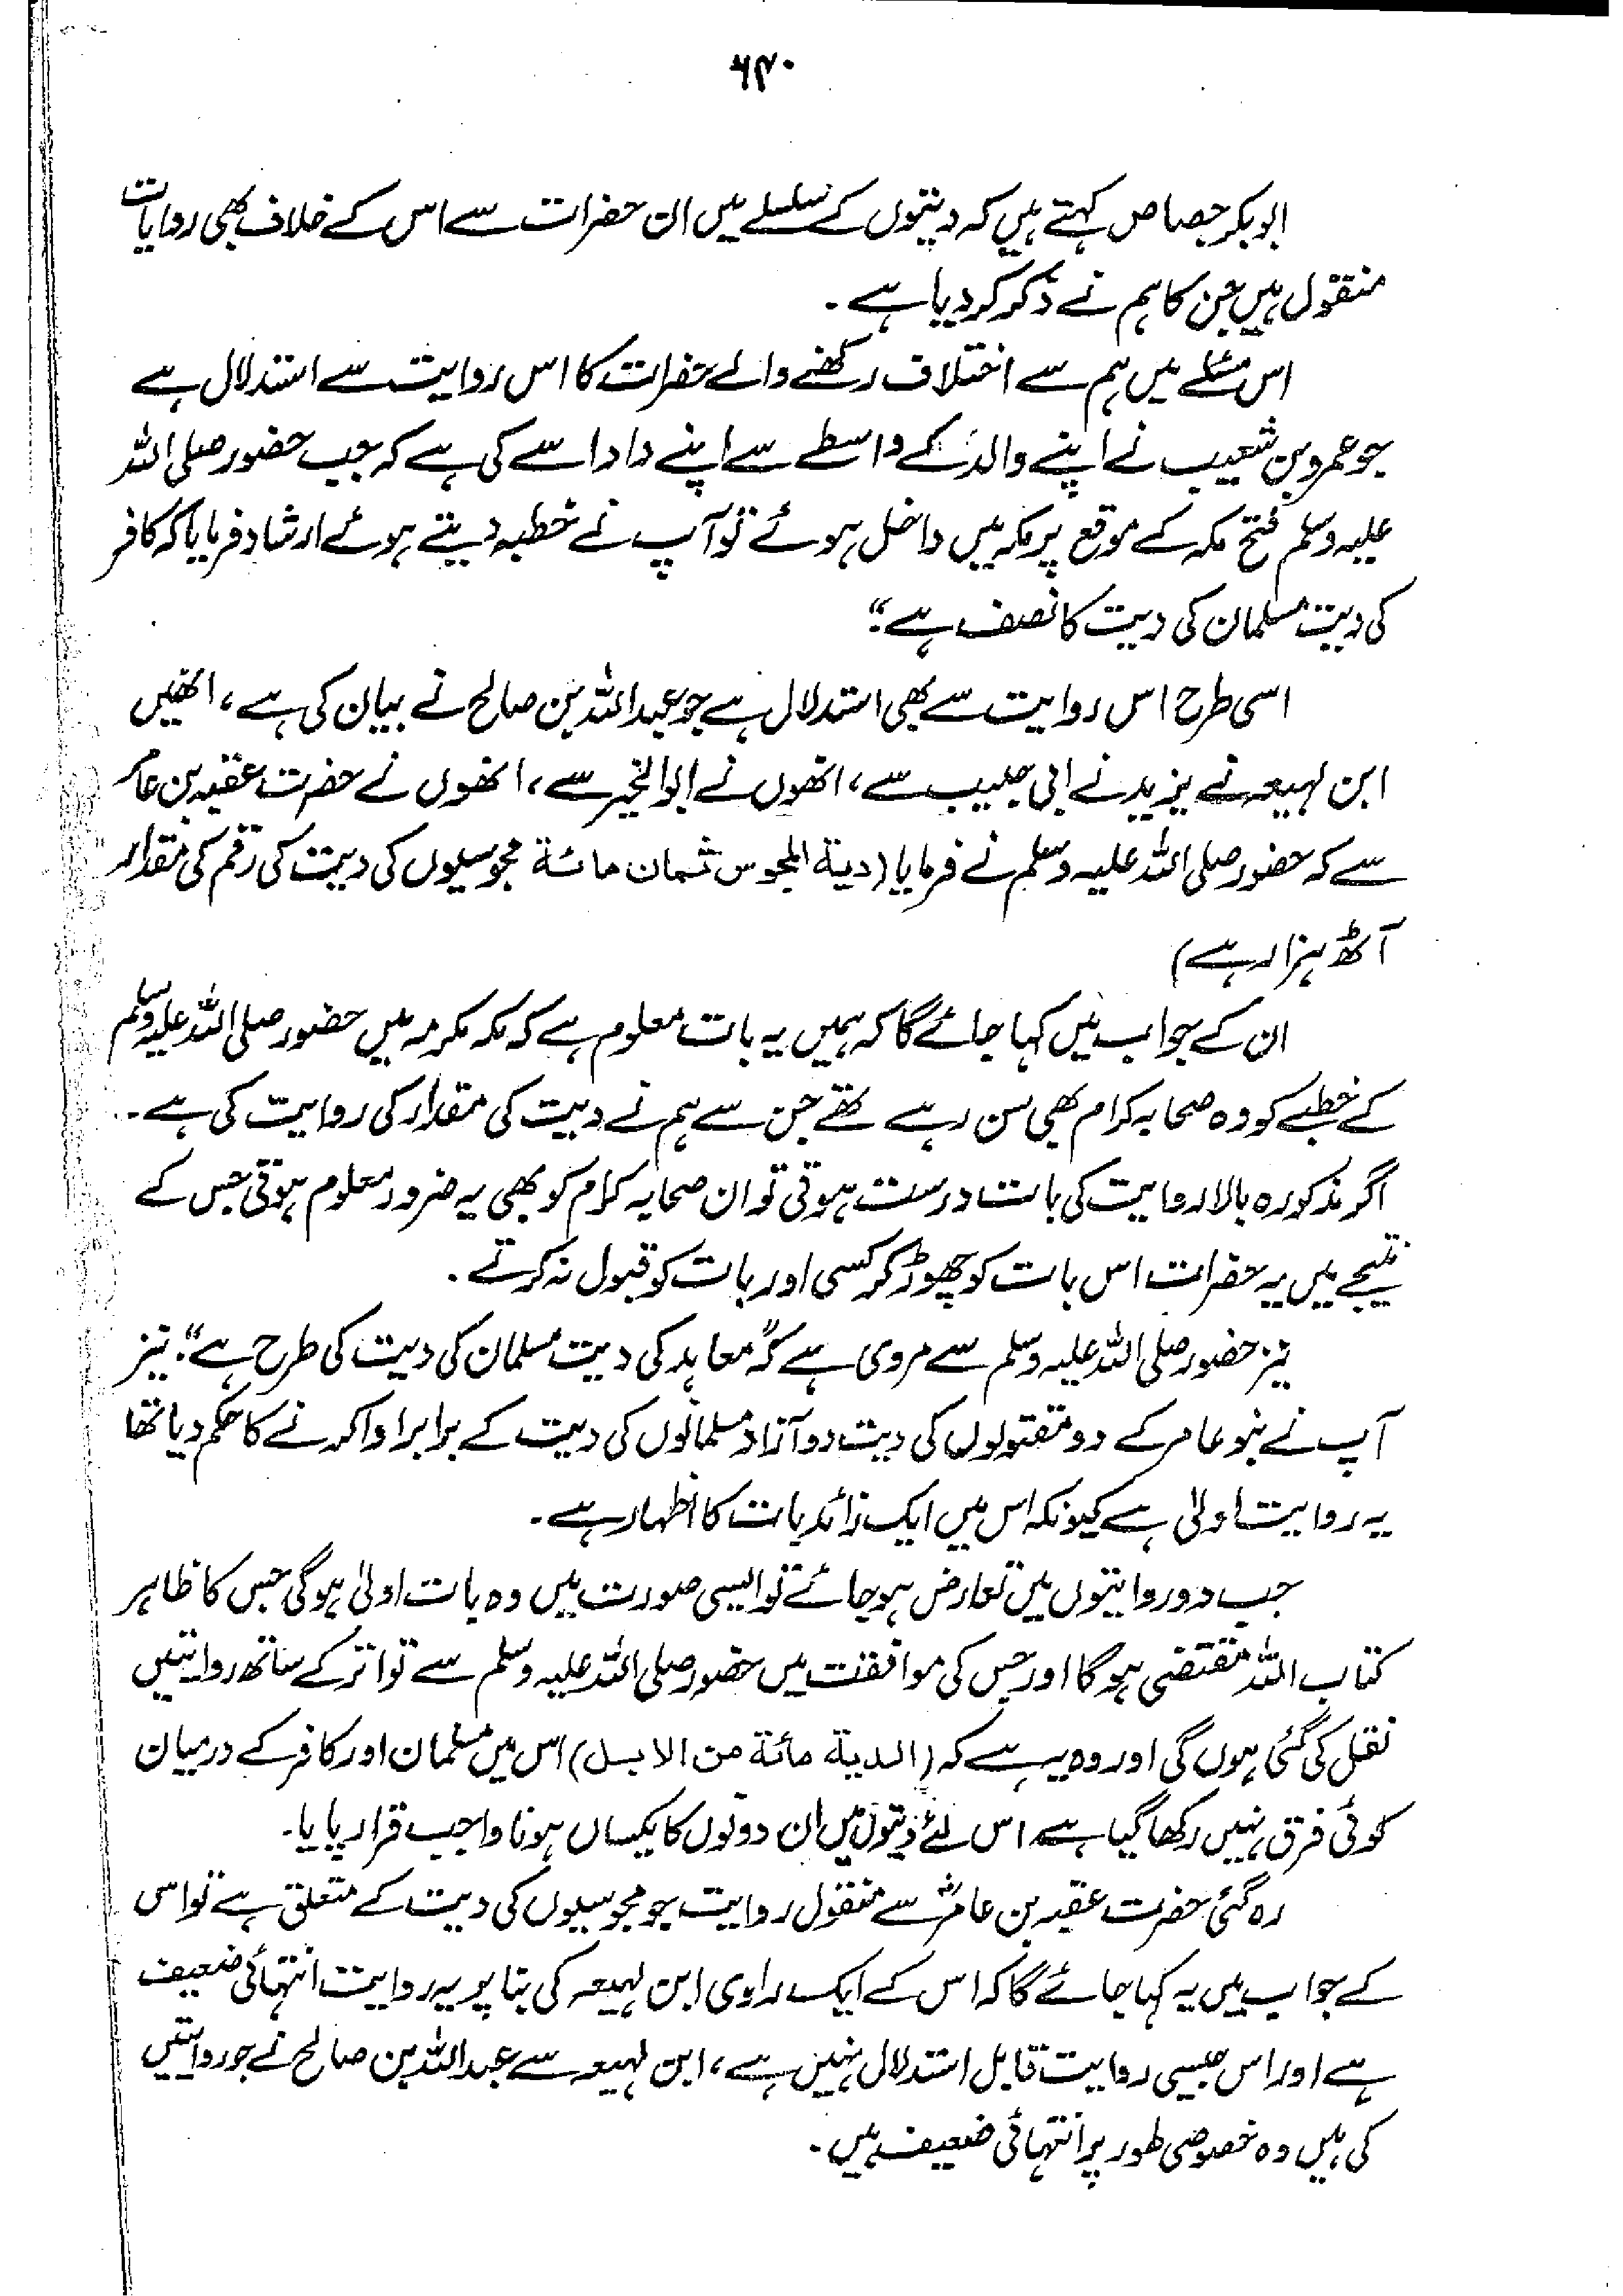 ۶۴۰
ابوبکر جصاص کہتے ہیں کہ دیتوں کے سلسلے میں ان حضرات سے اس کے خلاف بھی روایات
منقول ہیں جن کا ہم نے ذکر کر دیا ہے۔
اس مسئلے میں ہم سے اختلاف رکھنے والے حضرات کا اس روایت سے استدلال ہے
جو عمرو بن شعیب نے اپنے والد کے واسطے سے اپنے دادا سے کی ہے کہ جب حضور صلی اللہ
علیہ وسلم فتح مکہ کے موقع پر مکہ میں داخل ہوئے تو آپ نے خطبہ دیتے ہوئے ارشاد فرمایا کہ کافر
کی دیت مسلمان کی دیت کا نصف ہے“
اسی طرح اس روایت سے بھی استدلال ہے جو عبداللہ بن صالح نے بیان کی ہے، انھیں
ابن لہیعہ نے یزید نے ابی حبیب سے، انھوں نے ابوالخیر سے، انھوں نے حضرت عقبہ بن عامر
سے کہ حضور صلی اللہ علیہ وسلم نے فرمایا (دیة المجوس ثمان مائة مجوسیوں کی دیت کی رقم کی مقدار
آٹھ ہزار ہے)
ان کے جواب میں کہا جائے گا کہ ہمیں یہ بات معلوم ہے کہ مکہ مکرمہ میں حضور صلی اللہ علیہ وسلم
کے خطبے کو وہ صحابہ کرام بھی سن رہے تھے جن سے ہم نے دیت کی مقدار کی روایت کی ہے۔
اگر مذکورہ بالا روایت کی بات درست ہوتی تو ان صحابہ کرام کو بھی یہ ضرور معلوم ہوتی جس کے
نتیجے میں یہ حضرات اس بات کو چھوڑ کر کسی اور بات کو قبول نہ کرتے۔
نیز حضور صلی اللہ علیہ وسلم سے مروی ہے کہ ”معاہد کی دیت مسلمان کی دیت کی طرح ہے“۔ نیز
آپ نے بنو عامر کے دو مقتولوں کی دیت دو آزاد مسلمانوں کی دیت کے برابر ادا کرنے کا حکم دیا تھا
یہ روایت اولیٰ ہے کیونکہ اس میں ایک زائد بات کا اظہار ہے۔
جب دو روایتوں میں تعارض ہو جائے تو ایسی صورت میں وہ بات اولیٰ ہوگی جس کا ظاہر
کتاب اللہ مقتضی ہوگا اور جس کی موافقت میں حضور صلی اللہ علیہ وسلم سے تواتر کے ساتھ روایتیں
نقل کی گئی ہوں گی اور وہ یہ ہے کہ (الدیة مائة من الابل) اس میں مسلمان اور کافر کے درمیان
کوئی فرق نہیں رکھا گیا ہے اس لئے دیتوں میں ان دونوں کا یکساں ہونا واجب قرار پایا۔
رہ گئی حضرت عقبہ بن عامرؓ سے منقول روایت جو مجوسیوں کی دیت کے متعلق ہے تو اس
کے جواب میں یہ کہا جائے گا کہ اس کے ایک راوی ابن لہیعہ کی بنا پر یہ روایت انتہائی ضعیف
ہے اور اس جیسی روایت قابل استدلال نہیں ہے، ابن لہیعہ سے عبداللہ بن صالح نے جو روایتیں
کی ہیں وہ خصوصی طور پر انتہائی ضعیف ہیں۔